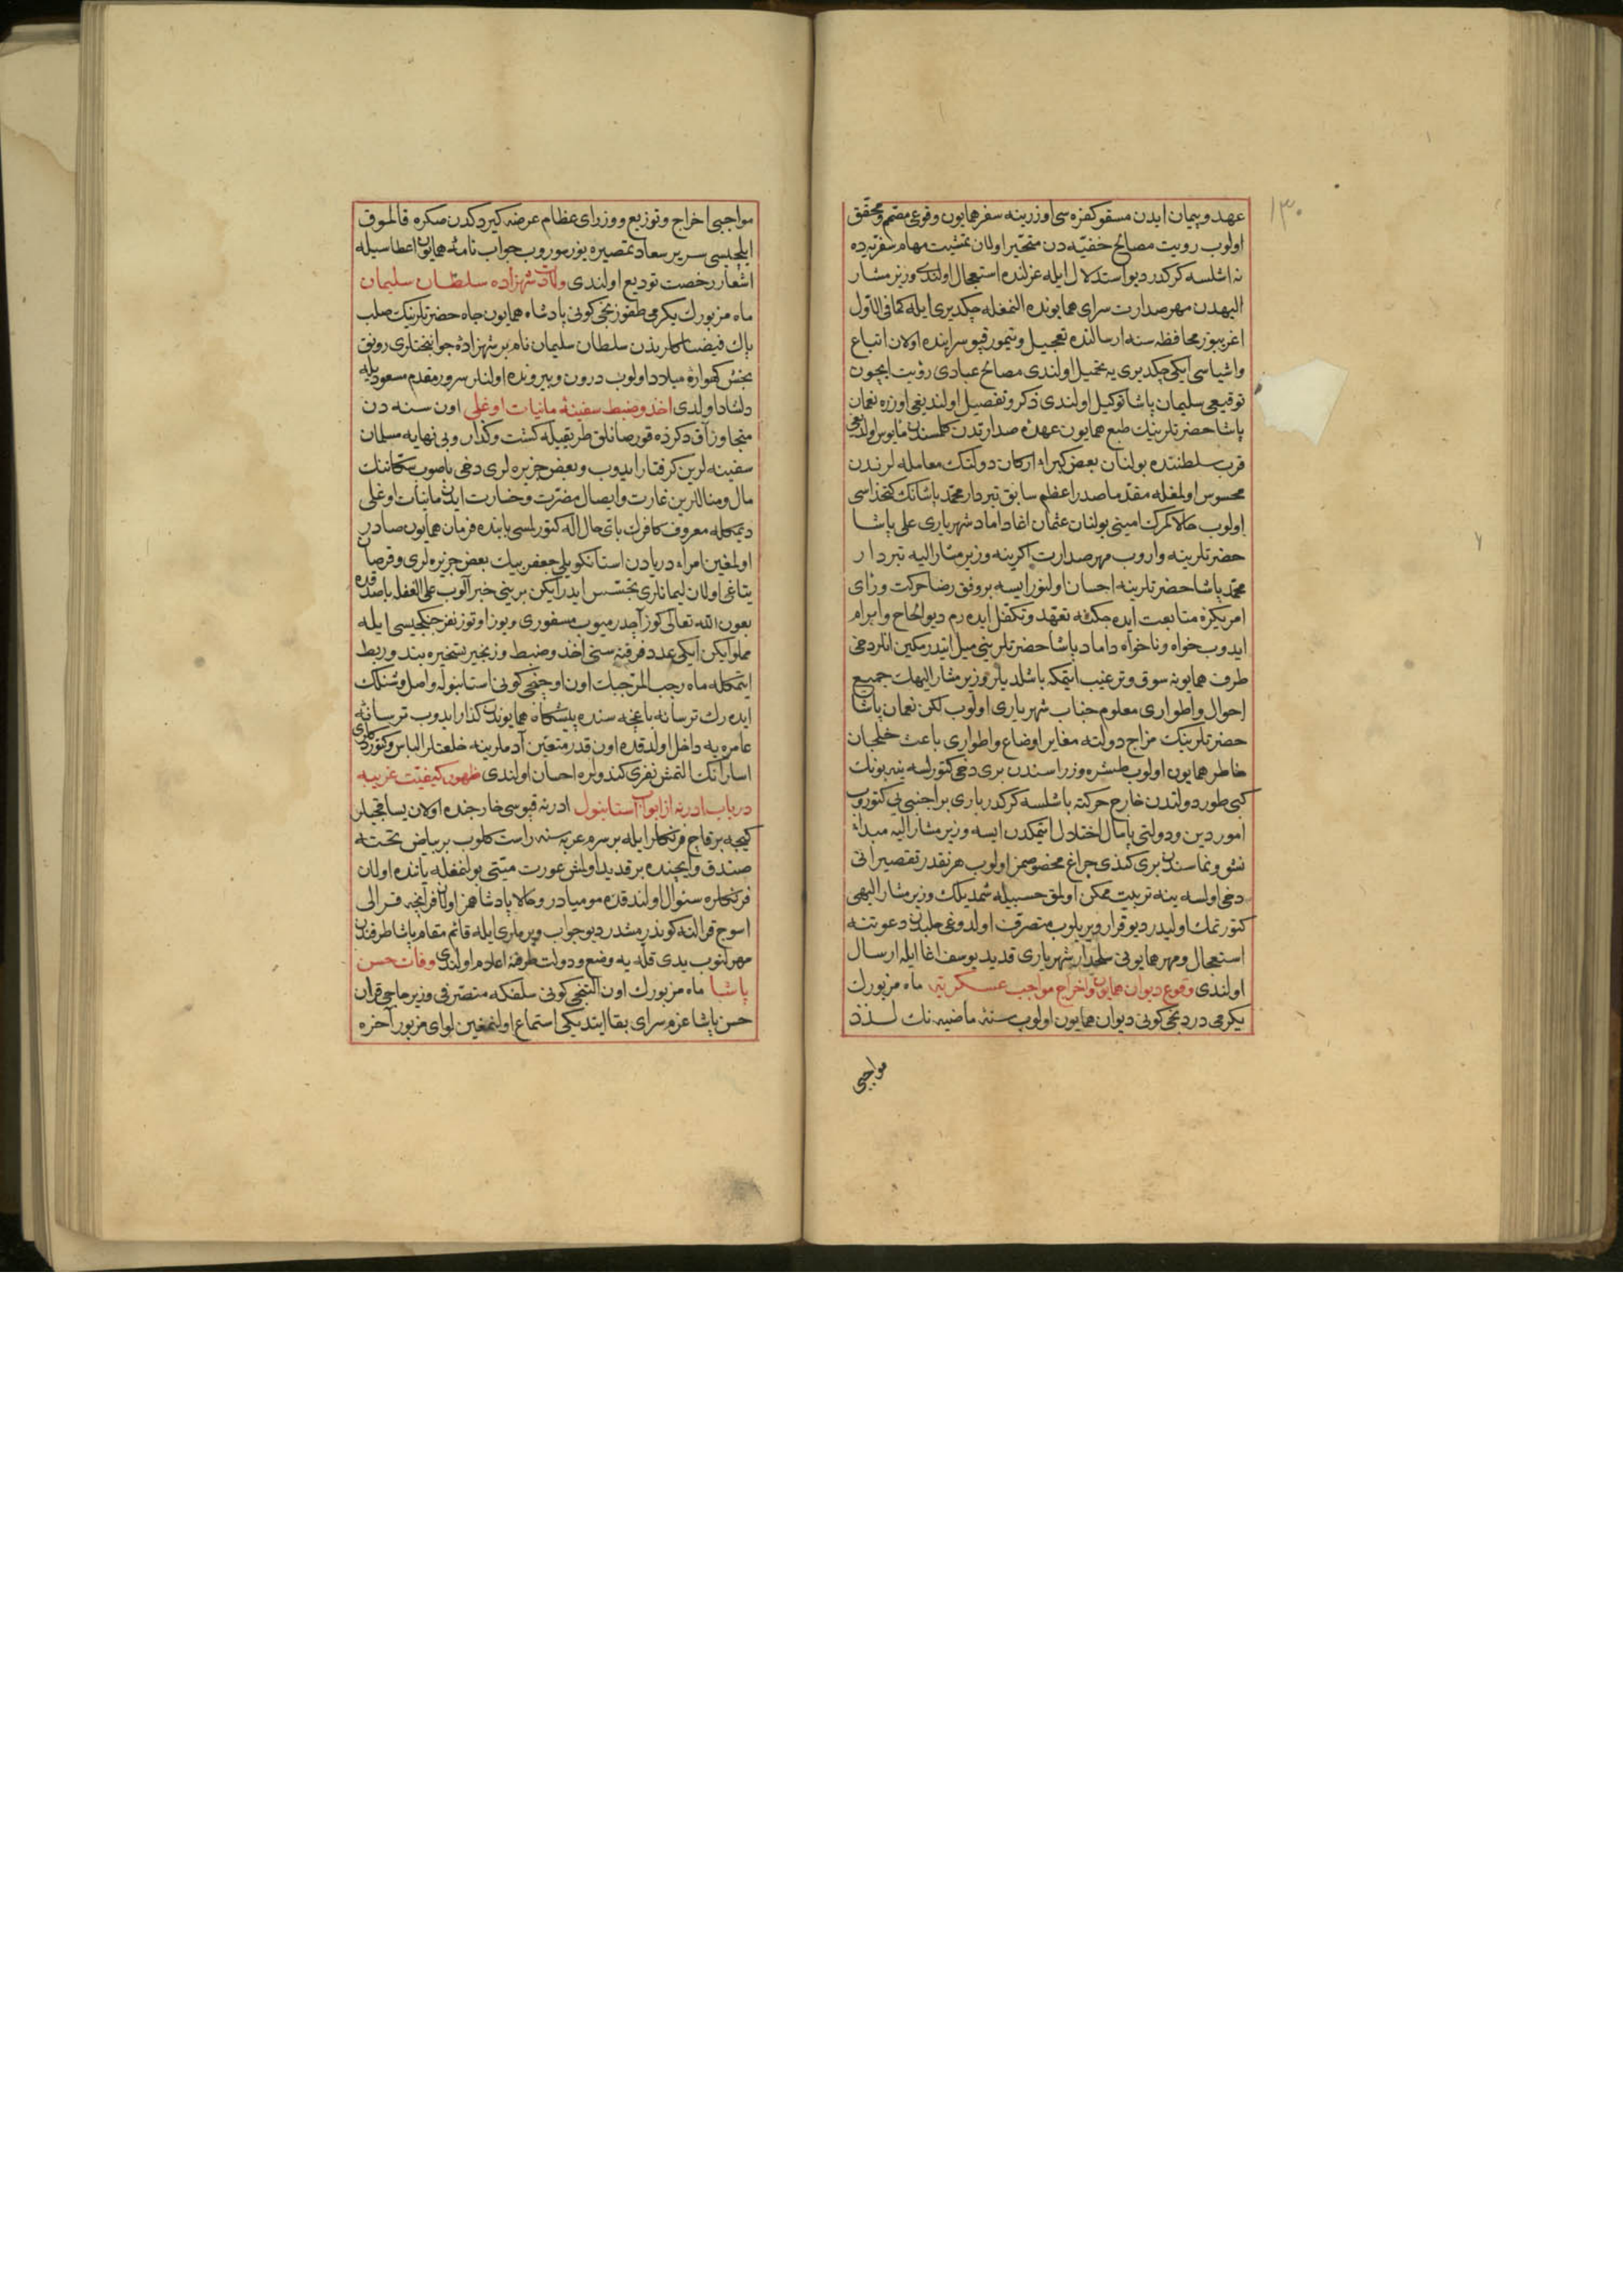 ١٣٠
عهد وپیمان ایدن مسقو کفره سی اوزرینه سفر همایون وقوعی مصمم ومحقق
اولوب رویت مصالح خفیه دن متحیر اولان تمشیت مهام سفریه ده
نه اشلسه کرکدر دیو استدلال ایله عزلنده استعجال اولندی وزیر مشار
الیهدن مهر صدارت سرای همایونده النمغله چکدیری ایله کمافی الاول
اغریبوز محافظه سنه ارسالنده تعجیل وتیمور قپو سراینده اولان اتباع
واشیاسی ایکی چکدیری یه تحمیل اولندی مصالح عبادی رؤیت ایچون
توقیعی سلیمان پاشا توکیل اولندی ذکر وتفصیل اولندیغی اوزره نعمان
پاشا حضرتلرینك طبع همایون عهدهٔ صدارتدن کلمسندن مأیوس اولدیغی
قرب سلطنتده بولنان بعض کبراء ارکان دولتك معامله لرندن
محسوس اولمغله مقدما صدراعظم سابق تبردار محمد پاشانك کتخداسی
اولوب حالا کمرك امینی بولنان عثمان اغا داماد شهریاری علی پاشا
حضرتلرینه واروب مهر صدارت اکرینه وزیر مشارالیه تبردار
محمد پاشا حضرتلرینه احسان اولنورایسه بر وفق رضا حرکت ورای
امریکزه متابعت ایده جکنه تعهد وتکفل ایده رم دیو الحاح وابرام
ایدوب خواه وناخواه داماد پاشا حضرتلرینی میل ایتدرمکین انلر دخی
طرف همایونه سوق وترغیب ایتمکه باشلدیلر وزیر مشار الیهك جمیع
احوال واطواری معلوم جناب شهریاری اولوب لکن نعمان پاشا
حضرتلرینك مزاج دولته مغایر اوضاع واطواری باعث خلجان
خاطر همایون اولوب طشره وزراسندن بری دخی کتورلسه ینه بونك
کبی طور دولتدن خارج حرکته باشلسه کرکدر باری بر اجنبی یی کتوروب
امور دین ودولتی پامال اختلال ایتمکدن ایسه وزیر مشار الیه مبدأ
نشو ونماسندن بری کندی چراغ مخصوصمز اولوب هر نقدر تقصیراتی
دخی اولسه ینه تربیت ممکن اولمق حسبیله شمدیلك وزیر مشار الیهی
کتورتمك اولیدر دیو قرار ویریلوب متصرف اولدوغی حلبدن دعوتنه
استعجال ومهر همایونی سلحدار شهریاری قدید یوسف اغا ایله ارسال
اولندی وقوع دیوان همایون واخراج مواجب عسکریه ماه مزبورك
یکرمی دردنجی کونی دیوان همایون اولوب سنهٔ ماضیه نك لذذ
مواجبی
مواجبی اخراج وتوزیع ووزرای عظام عرضه کیردکدن صکره قالموق
ایلچیسی سریر سعادتمصیره یوز سوروب جواب نامهٔ همایون اعطاسیله
اشعار رخصت تودیع اولندی ولادت شهزاده سلطان سلیمان
ماه مزبورك یکرمی طقوزنجی کونی پادشاه همایون جاه حضرتلرینك صلب
پاك فیضناکلرندن سلطان سلیمان نام بر شهزادهٔ جوانبختلری رونق
بخش کهوارهٔ میلاد اولوب درون وبیرونده اولنلر سرور مقدم مسعودیله
دلشاد اولدی اخذ وضبط سفینهٔ مانیات اوغلی اون سنه دن
متجاوز آق دکزده قورصانلق طریقیله کشت وکذار وبی نهایه مسلمان
سفینه لرین کرفتار ایدوب وبعض جزیره لری دخی باصوب سکاننك
مال ومناللرین غارت وایصال مضرت وخسارت ایدن مانیات اوغلی
دیمکله معروف کافرك باتی حال اله کتورلمسی بابنده فرمان همایون صادر
اولمغین امراء دریادن استانکویلی جعفر بیك بعض جزیره لری وقرصان
یتاغی اولان لیمانلری تجسس ایدرایکن برینی خبر آلوب علی الغفله باصدقده
بعون الله تعالی کوز آچدرمیوب مسفوری ویوز اوتوز نفر جنکجیسی ایله
مملو ایکن ایکی عدد فرقته سنی اخذ وضبط وزنجیر تسخیره بند وربط
ایتمکله ماه رجب المرجبك اون اوچنجی کونی استانبوله واصل وشنلك
ایده رك ترسانه باغچه سنده پیشکاه همایوندن کذار ایدوب ترسانهٔ
عامره یه داخل اولدقده اون قدر متعین آدملرینه خلعتلر الباس وکتوردکلری
اسارانك التمش نفری کندولره احسان اولندی ظهور کیفیت غریبه
در باب ادرنه از ابواب استانبول ادرنه قپوسی خارجنده اولان یساقجیلر
کیجه بر قاچ فرنکلر ایله بر سرم عربه سنه راست کلوب بر بیاض تخته
صندق وایچنده بر قدید اولمش عورت میتی بولنمغله یاننده اولان
فرنکلره سئوال اولندقده مومیادر وحالا پادشاهمز اولان فرانچه قرالی
اسوج قرالنه کوندرمشدر دیو جواب ویرملری ایله قائم مقام پاشا طرفندن
مهرلنوب یدی قله یه وضع ودولت طرفنه اعلام اولندی وفات حسن
پاشا ماه مزبورك اون التنجی کونی سلفکه متصرفی وزیر حاجی قران
حسن پاشا عزم سرای بقا ایتدیکی استماع اولنمغین لوای مزبور آخره